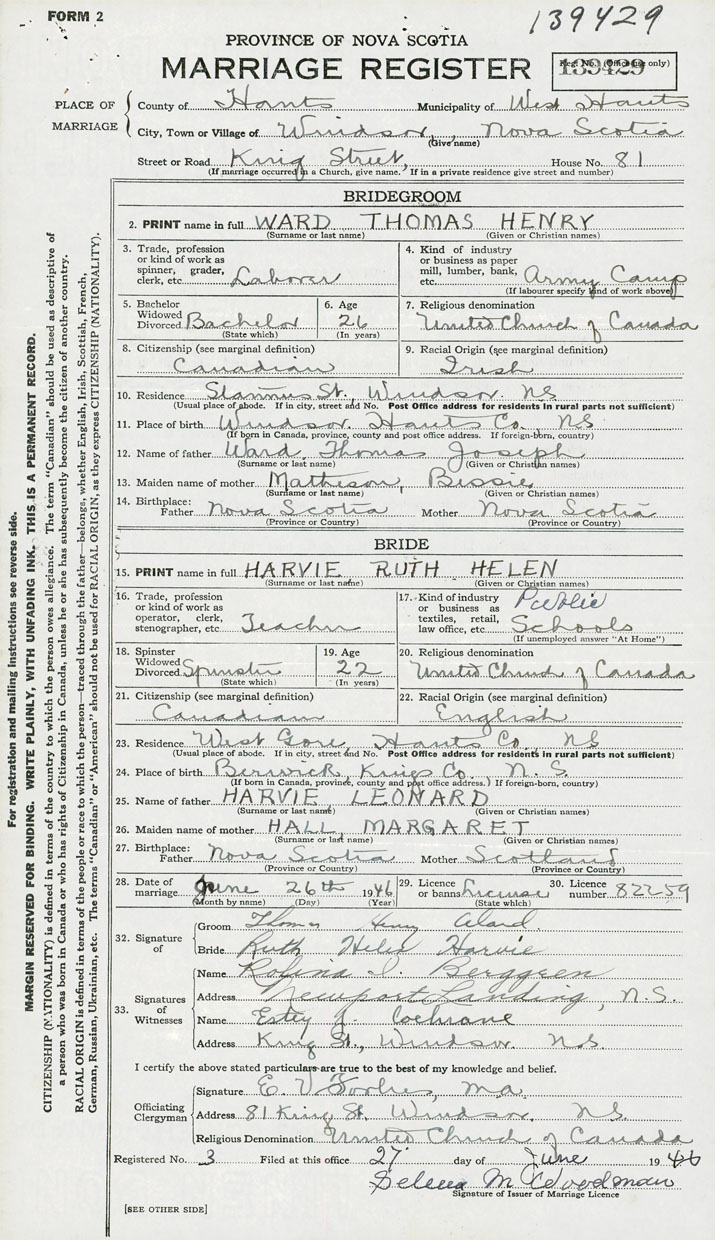 FORM 2
139429
PROVINCE OF NOVA SCOTIA
MARRIAGE REGISTER
Reg. No. (Office use only)
139429
PLACE OF MARRIAGE
County of Hants Municipality of West Hants
City, Town or Village of Windsor, Nova Scotia
(Give name)
Street or Road King Street, House No. 81
(If marriage occurred in a Church, give name. If in a private residence give street and number)
BRIDEGROOM
2. PRINT name in full WARD THOMAS HENRY
(Surname or last name) (Given or Christian names)
3. Trade, profession or kind of work as spinner, grader, clerk, etc. Laborer
4. Kind of industry or business as paper mill, lumber, bank, etc. Army Camp
(If labourer specify kind of work above)
5. Bachelor Widowed Divorced Bachelor
(State which)
6. Age 26
(In years)
7. Religious denomination
United Church of Canada
8. Citizenship (see marginal definition)
Canadian
9. Racial Origin (see marginal definition)
Irish
10. Residence Stannus St., Windsor. NS
(Usual place of abode. If in city, street and No. Post Office address for residents in rural parts not sufficient)
11. Place of birth Windsor. Hants Co., NS
(If born in Canada, province, county and post office address. If foreign-born, country)
12. Name of father Ward, Thomas Joseph
(Surname or last name) (Given or Christian names)
13. Maiden name of mother Matheson, Bessie
(Surname or last name) (Given or Christian names)
14. Birthplace: Father Nova Scotia Mother Nova Scotia
(Province or Country) (Province or Country)
BRIDE
15. PRINT name in full HARVIE RUTH HELEN
(Surname or last name) (Given or Christian names)
16. Trade, profession or kind of work as operator, clerk, stenographer, etc. Teacher
17. Kind of industry or business as textiles, retail, law office, etc. Public Schools
(If unemployed answer "At Home")
18. Spinster Widowed Divorced Spinster
(State which)
19. Age 22
(In years)
20. Religious denomination
United Church of Canada
21. Citizenship (see marginal definition)
Canadian
22. Racial Origin (see marginal definition)
English
23. Residence West Gore, Hants Co. NS
(Usual place of abode. If in city, street and No. Post Office address for residents in rural parts not sufficient)
24. Place of birth Berwick, Kings Co. N. S.
(If born in Canada, province, county and post office address.) If foreign-born, country)
25. Name of father HARVIE, LEONARD
(Surname or last name) (Given or Christian names)
26. Maiden name of mother HALL, MARGARET
(Surname or last name) (Given or Christian names)
27. Birthplace: Father Nova Scotia Mother Scotland
(Province or Country) (Province or Country)
28. Date of marriage June 26th 1946
(Month by name) (Day) (Year)
29. Licence or banns License
(State which)
30. Licence number 82259
32. Signature of
Groom Thomas Henry Ward.
Bride Ruth Helen Harvie
33. Signatures of Witnesses
Name Rofina I. Berggren
Address Newport Landing, N.S.
Name Estey J. Cochrane
Address King St., Windsor N.S.
I certify the above stated particulars are true to the best of my knowledge and belief.
Officiating Clergyman
Signature E. V. Forbes, M.A.
Address 81 King St. Windsor. NS
Religious Denomination United Church of Canada
Registered No. 3 Filed at this office 27 day of June 1946
Selena M Woodman
Signature of Issuer of Marriage Licence
[SEE OTHER SIDE]
For registration and mailing instructions see reverse side.
MARGIN RESERVED FOR BINDING. WRITE PLAINLY, WITH UNFADING INK. THIS IS A PERMANENT RECORD.
CITIZENSHIP (NATIONALITY) is defined in terms of the country to which the person owes allegiance. The term "Canadian" should be used as descriptive of
a person who was born in Canada or who has rights of Citizenship in Canada, unless he or she has subsequently become the citizen of another country.
RACIAL ORIGIN is defined in terms of the people or race to which the person—traced through the father—belongs, whether English, Irish, Scottish, French,
German, Russian, Ukrainian, etc. The terms "Canadian" or "American" should not be used for RACIAL ORIGIN, as they express CITIZENSHIP (NATIONALITY).